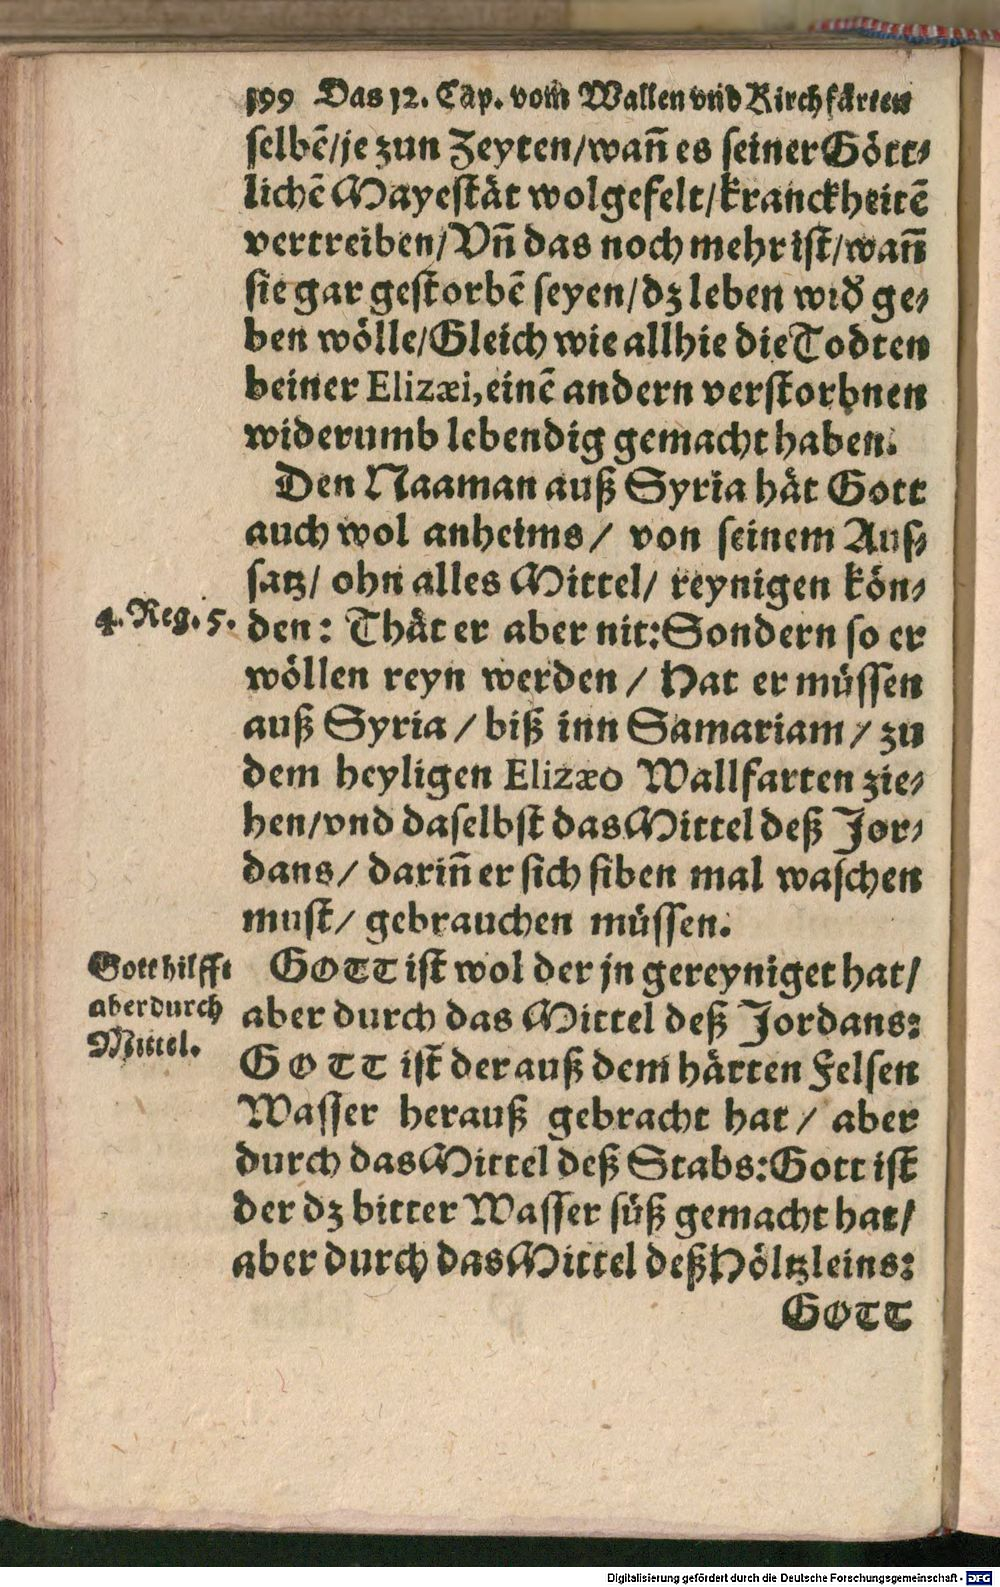 199 Das 12. Cap. vom Wallen vnd Kirchfärten
selbē/je zun Zeyten/wañ es seiner Gött⸗
lichē Mayestät wolgefelt/kranckheitē
vertreiben/Vñ das noch mehr ist/wañ
sie gar gestorbē seyen/dz leben wiđ ge⸗
ben wölle/Gleich wie allhie die Todten
beiner Elizæi, einē andern verstorbnen
widerumb lebendig gemacht haben.
Den Naaman auß Syria hät Gott
auch wol anheims/ von seinem Auf⸗
satz/ ohn alles Mittel/ reynigen kön⸗
4. Reg. 5. den: Thät er aber nit: Sondern so er
wöllen reyn werden / Hat er müssen
auß Syria / biß inn Samariam / zu
dem heyligen Elizæo Wallfarten zie⸗
hen/vnd daselbst das Mittel deß Jor⸗
dans/ dariñ er sich siben mal waschen
must/ gebrauchen müssen.
Gott hilfft
aber durch
Mittel.
GOTT ist wol der jn gereyniget hat/
aber durch das Mittel deß Jordans:
GOTT ist der auß dem härten Felsen
Wasser herauß gebracht hat / aber
durch das Mittel deß Stabs: Gott ist
der dz bitter Wasser süß gemacht hat/
aber durch das Mittel deß Höltzleins:
GOTT
Digitalisierung gefördert durch die Deutsche Forschungsgemeinschaft - DFG